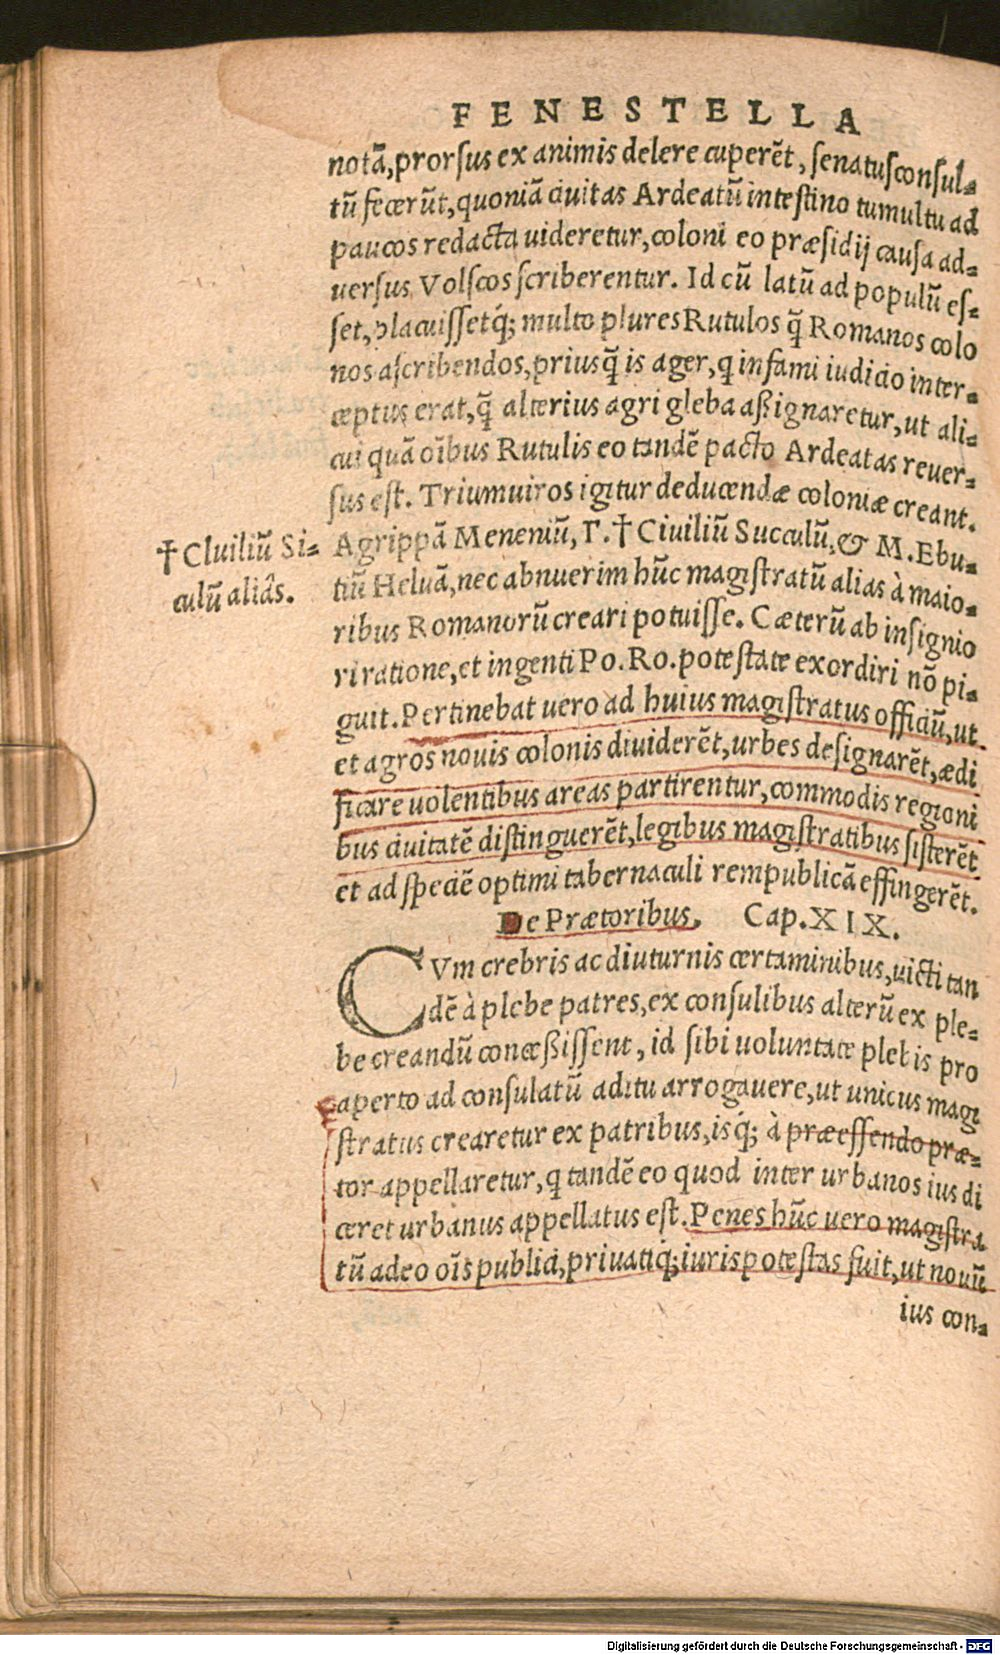 FENESTELLA
notā, prorsus ex animis delere cuperēt, senatusconsul-
tū fecerūt, quoniā ciuitas Ardeatū intestino tumultu ad
paucos redacta uideretur, coloni eo præsidij causa ad-
uersus Volscos scriberentur. Id cū latū ad populū es-
set, placuissetq́; multo plures Rutulos q̄ Romanos colo
nos ascribendos, priusq̄ is ager, q infami iudicio inter-
ceptus erat, q̄ alterius agri gleba aßignaretur, ut ali-
cui quā oībus Rutulis eo tandē pacto Ardeatas reuer-
sus est. Triumuiros igitur deducendæ coloniæ creant.
Agrippā Meneniū, T. † Ciuiliū Succulū, & M. Ebu-
tiū Heluā, nec abnuerim hūc magistratū alias à maio-
ribus Romanorū creari potuisse. Cæterū ab insignio
ri ratione, et ingenti Po. Ro. potestate exordiri nō pi-
guit. Pertinebat uero ad huius magistratus officiū, ut
et agros nouis colonis diuiderēt, urbes designarēt, ædi
ficare uolentibus areas partirentur, commodis regioni
bus ciuitatē distinguerēt, legibus magistratibus sisterēt
et ad speciē optimi tabernaculi rempublicā effingerēt.
† Cluiliū Si-
culū aliâs.
De Prætoribus. Cap. XIX.
CVm crebris ac diuturnis certaminibus, uicti tan
dē à plebe patres, ex consulibus alterū ex ple-
be creandū conceßissent, id sibi uoluntate plebis pro
aperto ad consulatū aditu arrogauere, ut unicus magi
stratus crearetur ex patribus, isq́; à præessendo præ-
tor appellaretur, q tandē eo quod inter urbanos ius di
ceret urbanus appellatus est. Penes hūc uero magistra
tū adeo oīs publici, priuatiq́; iuris potestas fuit, ut nouū
ius con-
Digitalisierung gefördert durch die Deutsche Forschungsgemeinschaft - DFG